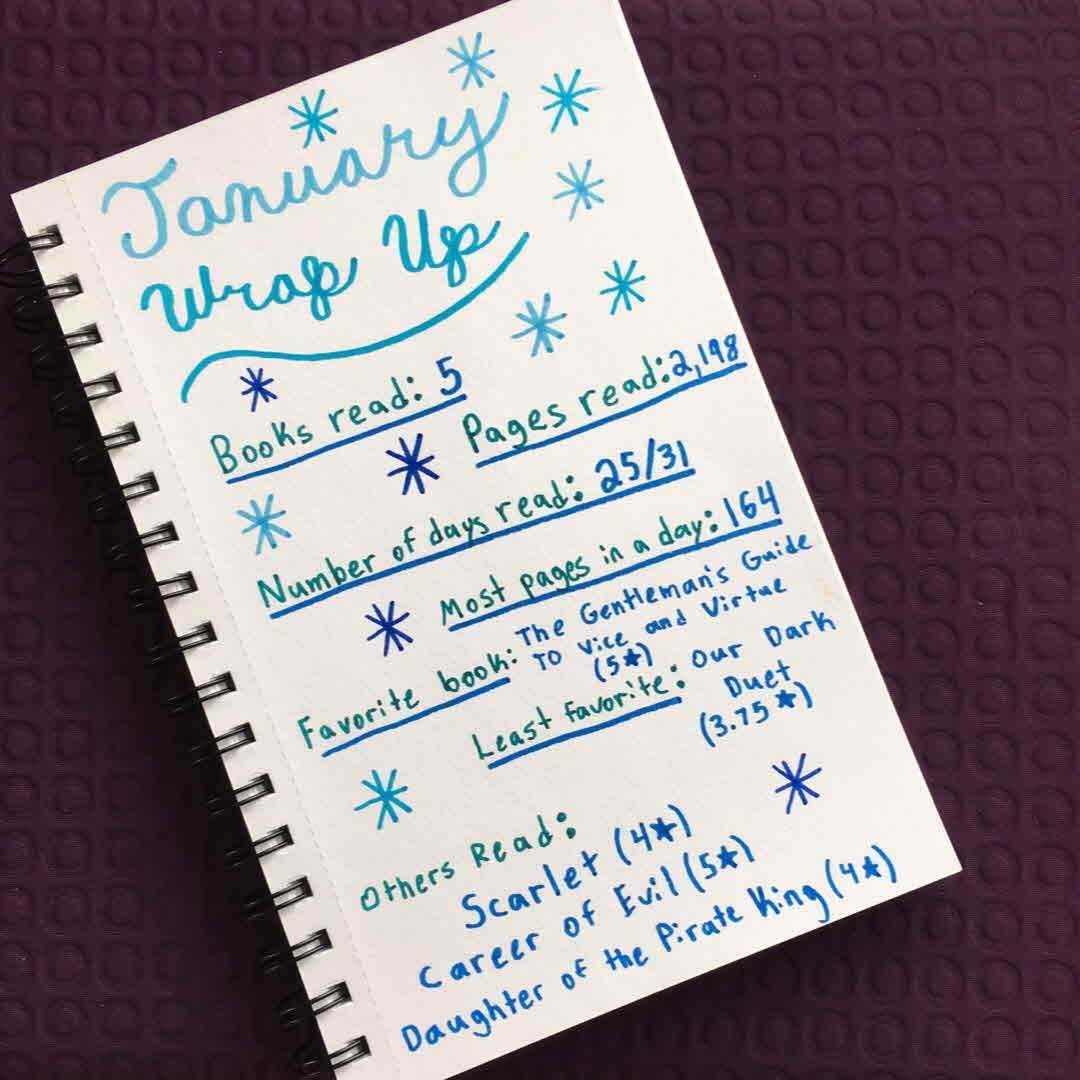 January
Wrap Up
Books read: 5
Pages read: 2,198
Number of days read: 25/31
Most pages in a day: 164
Favorite book: The Gentleman's Guide
To Vice and Virtue
(5★)
Least favorite: Our Dark
Duet
(3.75★)
Others Read:
Scarlet (4★)
Career of Evil (5★)
Daughter of the Pirate King (4★)